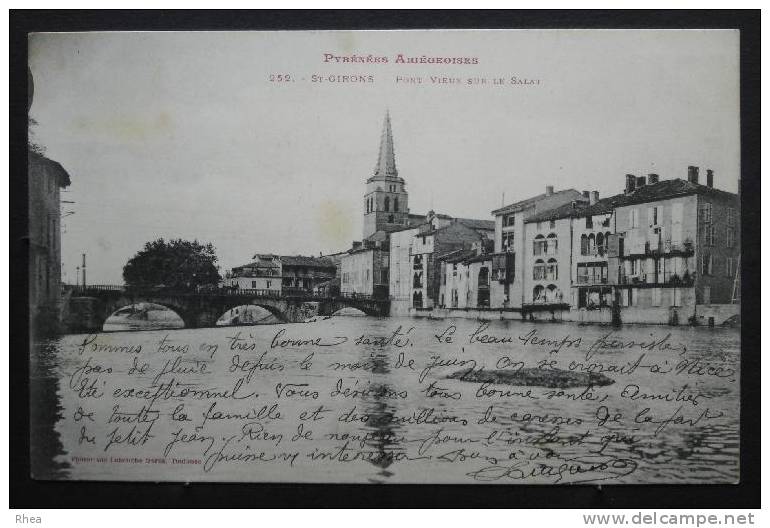 PYRÉNÉES ARIÉGEOISES
252. - ST-GIRONS PONT VIEUX SUR LE SALAT
Sommes tous en très bonne santé. Le beau temps persiste,
pas de pluie depuis le mois de Juin, on se croirait à Nice.
Été exceptionnel. Vous désirons à tous bonne santé, Amitiés
de toute la famille et des millions de caresses de la part
du petit Jean. Rien de nouveau pour l'instant qui
puisse vs intéresser. Bons à vous
Phototypie Labouche frères, Toulouse
Rhea
www.delcampe.net